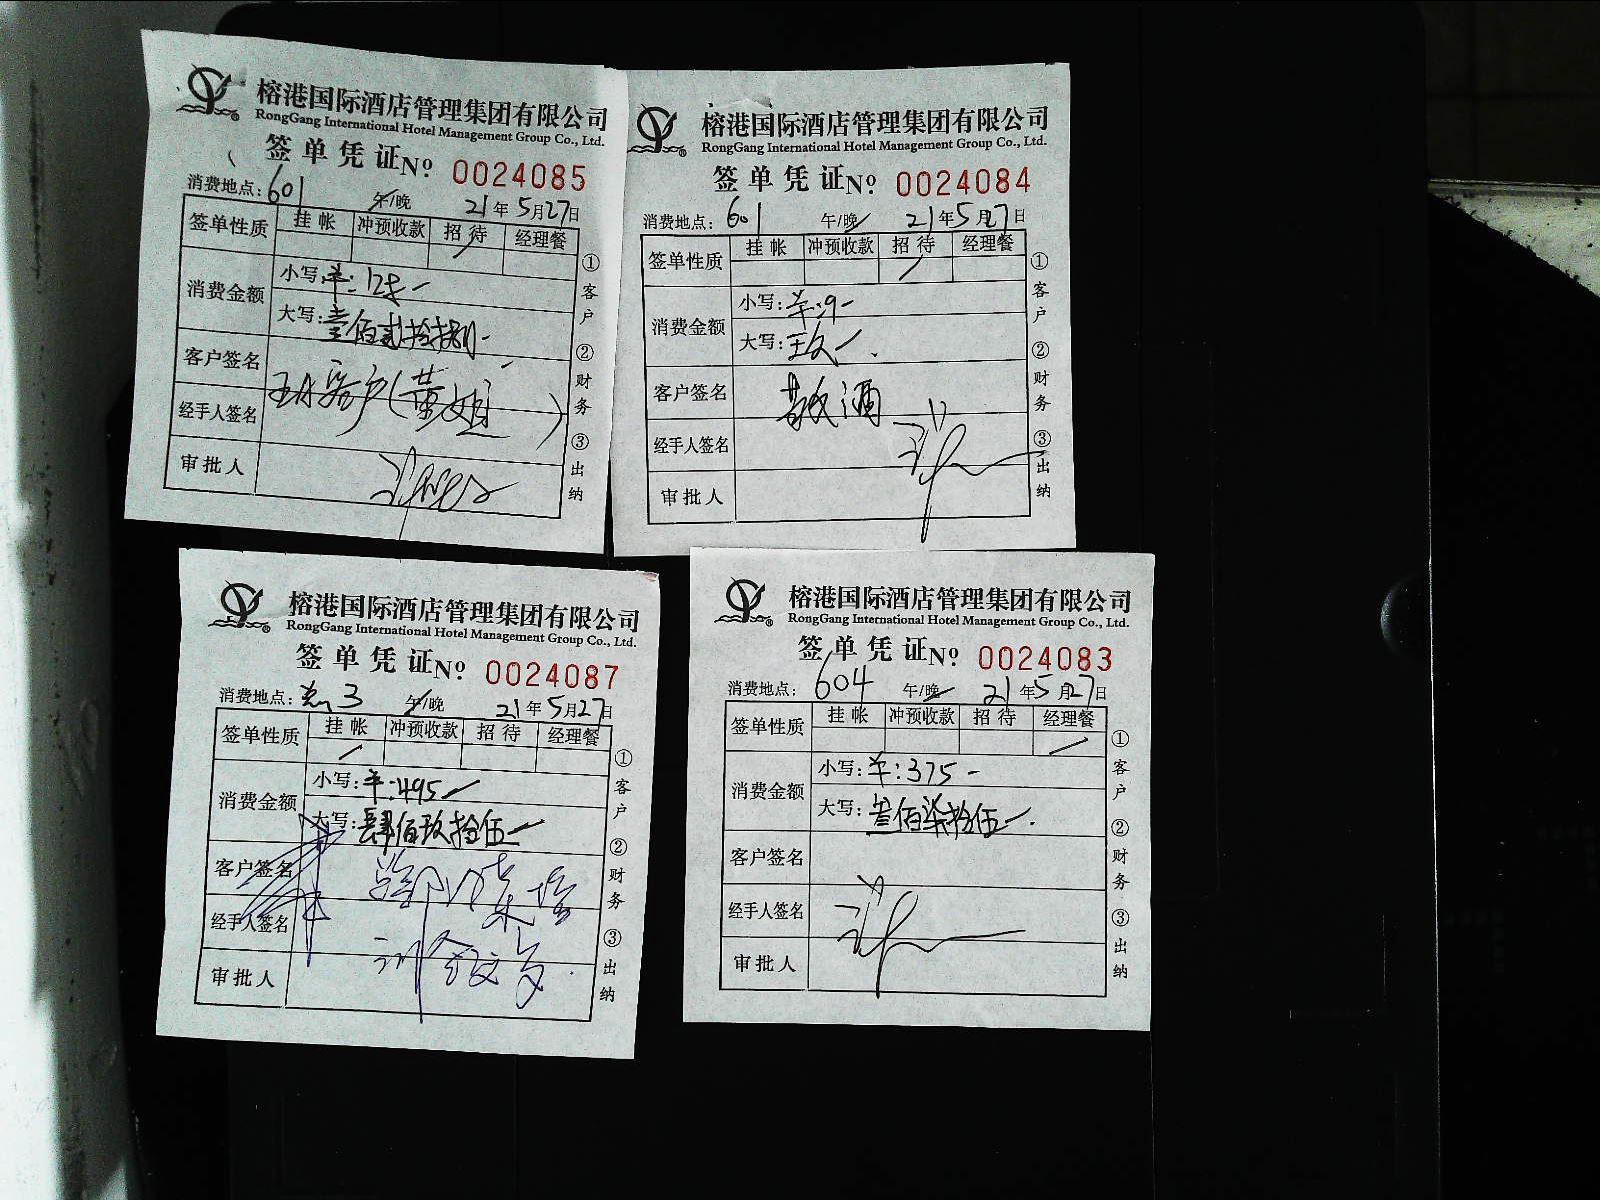 榕港国际酒店管理集团有限公司
RongGang International Hotel Management Group Co., Ltd.
签单凭证 Nº 0024085
消费地点: 601 午/晚 21年5月27日
签单性质 挂帐 冲预收款 招待 经理餐
消费金额
小写: 羊: 128-
大写: 壹佰贰拾捌-
客户签名
客户(黄姐)
经手人签名
审批人
①客户 ②财务 ③出纳
榕港国际酒店管理集团有限公司
RongGang International Hotel Management Group Co., Ltd.
签单凭证 Nº 0024084
消费地点: 601 午/晚 21年5月27日
签单性质 挂帐 冲预收款 招待 经理餐
消费金额
小写: 羊: 9-
大写: 玖-
客户签名 敬酒
经手人签名
审批人
①客户 ②财务 ③出纳
榕港国际酒店管理集团有限公司
RongGang International Hotel Management Group Co., Ltd.
签单凭证 Nº 0024087
消费地点: 3 午/晚 21年5月27日
签单性质 挂帐 冲预收款 招待 经理餐
消费金额
小写: 羊: 495-
大写: 肆佰玖拾伍-
客户签名
经手人签名
审批人
①客户 ②财务 ③出纳
榕港国际酒店管理集团有限公司
RongGang International Hotel Management Group Co., Ltd.
签单凭证 Nº 0024083
消费地点: 604 午/晚 21年5月27日
签单性质 挂帐 冲预收款 招待 经理餐
消费金额
小写: 羊: 375-
大写: 叁佰柒拾伍-
客户签名
经手人签名
审批人
①客户 ②财务 ③出纳